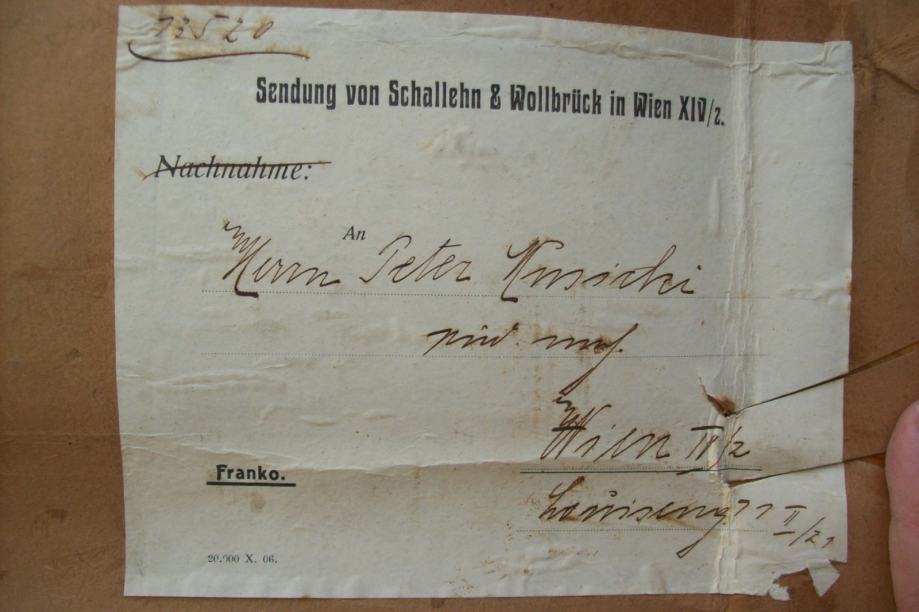 13520
Sendung von Schallehn & Wollbrück in Wien XIV/2.
Nachnahme:
An
Herrn Peter
Wien II/2
Franko.
II/21
20.000 X. 06.